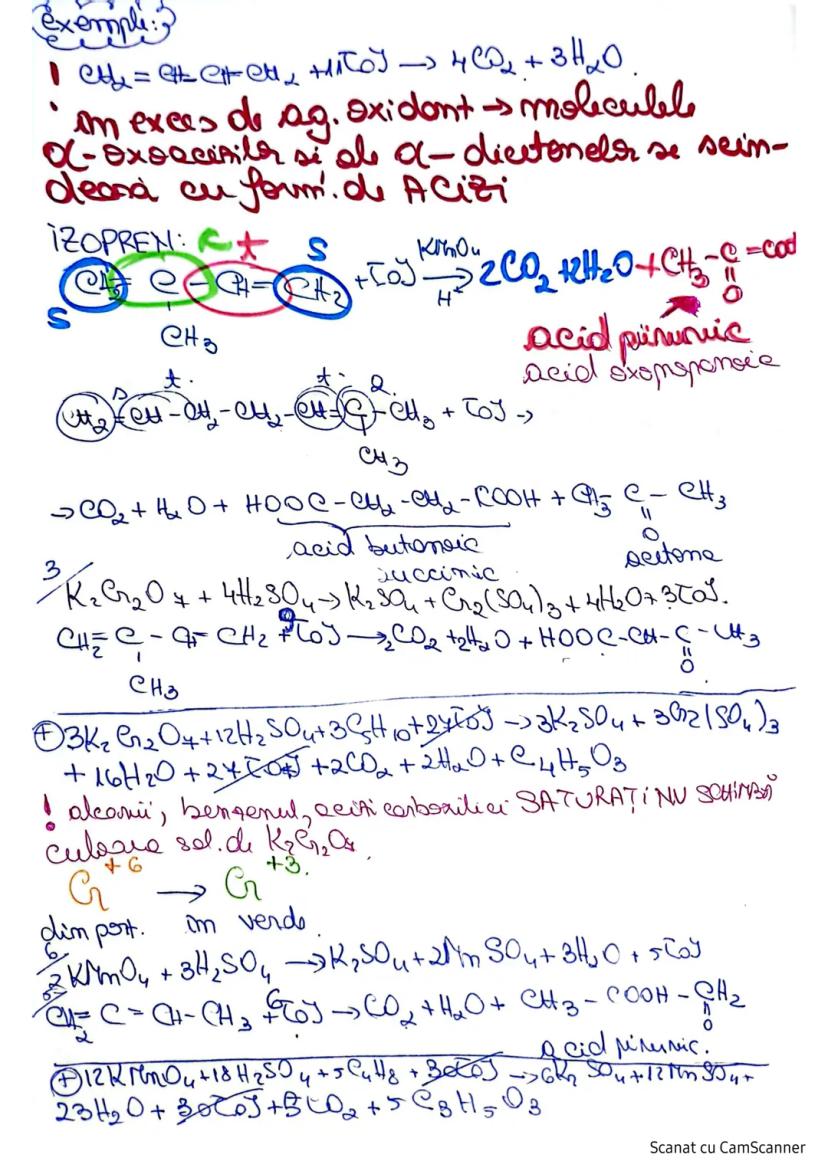 exemple:
! CH₂ = CH-CH=CH₂ +11[O] → 4CO₂ + 3H₂O.
• în exces de ag. oxidant → moleculele
α-oxoacizilor și ale α-dicetonelor se scin-
dează cu form. de ACIZI
IZOPREN: C t S
CH₂ = C - CH = CH₂ + [O] KMnO₄ → H⁺ 2CO₂ + 2H₂O + CH₃ - C = O
S
CH₃
acid piruvic
acid oxopropanoic
s t. t. 2.
CH₂ = CH - CH₂ - CH₂ - CH = C - CH₃ + [O] →
CH₃
→ CO₂ + H₂O + HOOC - CH₂ - CH₂ - COOH + CH₃ C - CH₃
O
acid butanoic acetona
succinic
3/ K₂Cr₂O₇ + 4H₂SO₄ → K₂SO₄ + Cr₂(SO₄)₃ + 4H₂O + 3[O].
CH₂ = C - CH = CH₂ + 9[O] → 2CO₂ + 2H₂O + HOOC - CH - C - CH₃
CH₃ O
⊕ 3K₂Cr₂O₇ + 12H₂SO₄ + 3C₅H₁₀ + 27[O] → 3K₂SO₄ + 3Cr₂(SO₄)₃
+ 16H₂O + 27[O] + 2CO₂ + 2H₂O + C₄H₅O₃
! alcanii, benzenul, acizi carboxilici SATURAȚI NU SCHIMBĂ
culoarea sol. de K₂Cr₂O₇.
Cr⁺⁶ → Cr⁺³
din port. în verde.
6/ 2KMnO₄ + 3H₂SO₄ → K₂SO₄ + 2MnSO₄ + 3H₂O + 5[O]
5/ CH₂ = C = CH - CH₃ + 6[O] → CO₂ + H₂O + CH₃ - COOH - CH₂
O
acid piruvic.
⊕ 12KMnO₄ + 18H₂SO₄ + 5C₄H₈ + 30[O] → 6K₂SO₄ + 12MnSO₄ +
23H₂O + 30[O] + 5CO₂ + 5C₃H₅O₃
Scanat cu CamScanner